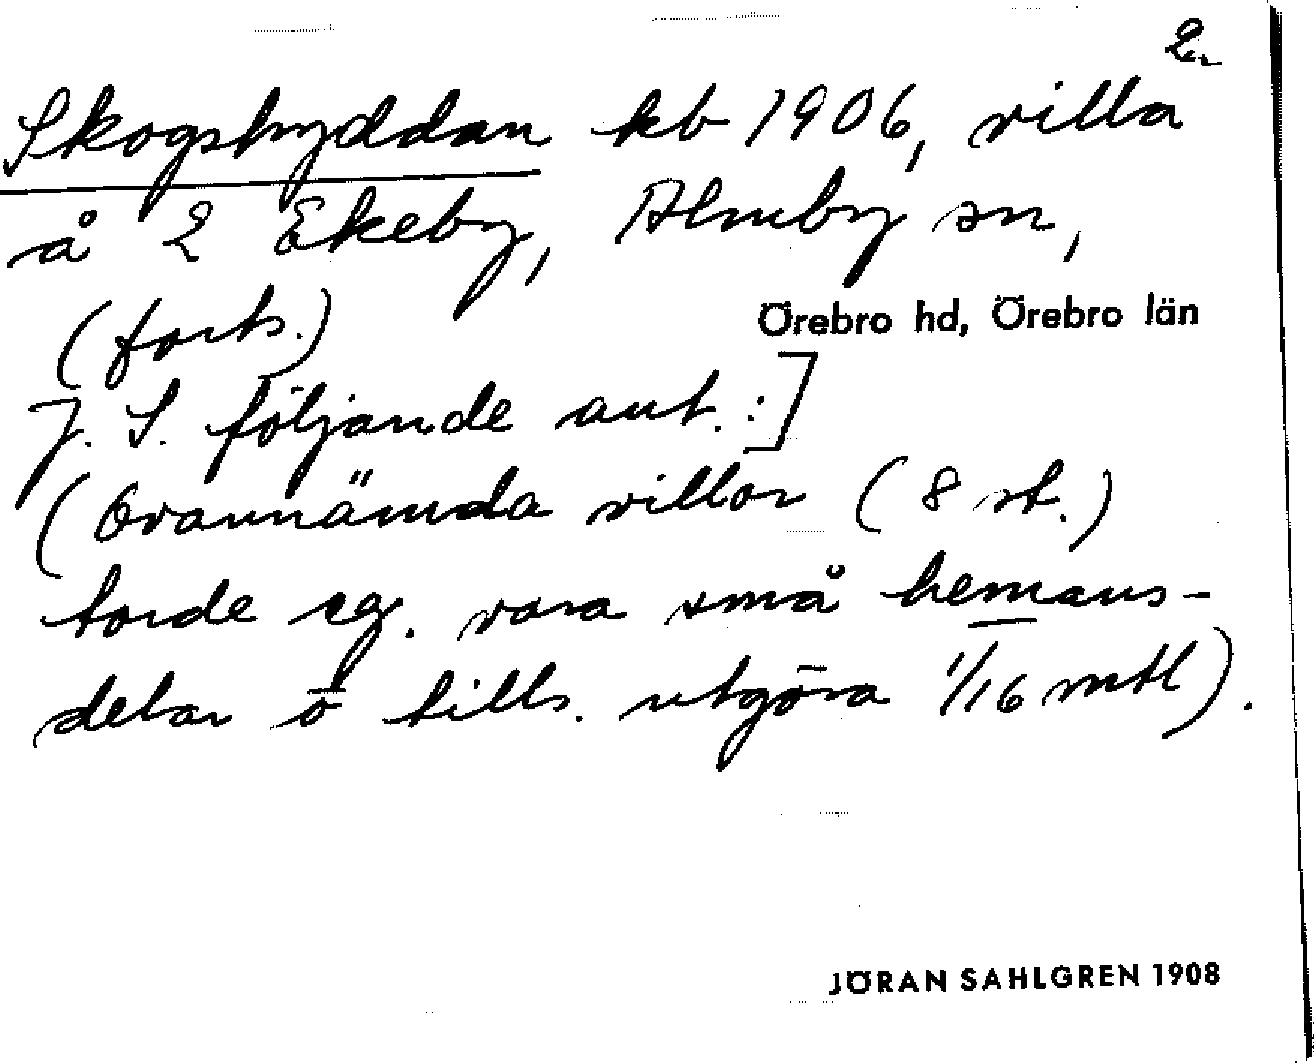 2.
Skogshyddan kb 1906, villa
å 2 Ekeby, Almby sn,
(forts.)
Örebro hd, Örebro län
J. S. följande ant. :]
(Ovannämda villor (8 st.)
torde eg. vara små hemans-
delar o tills. utgöra 1/16 mtl).
JÖRAN SAHLGREN 1908